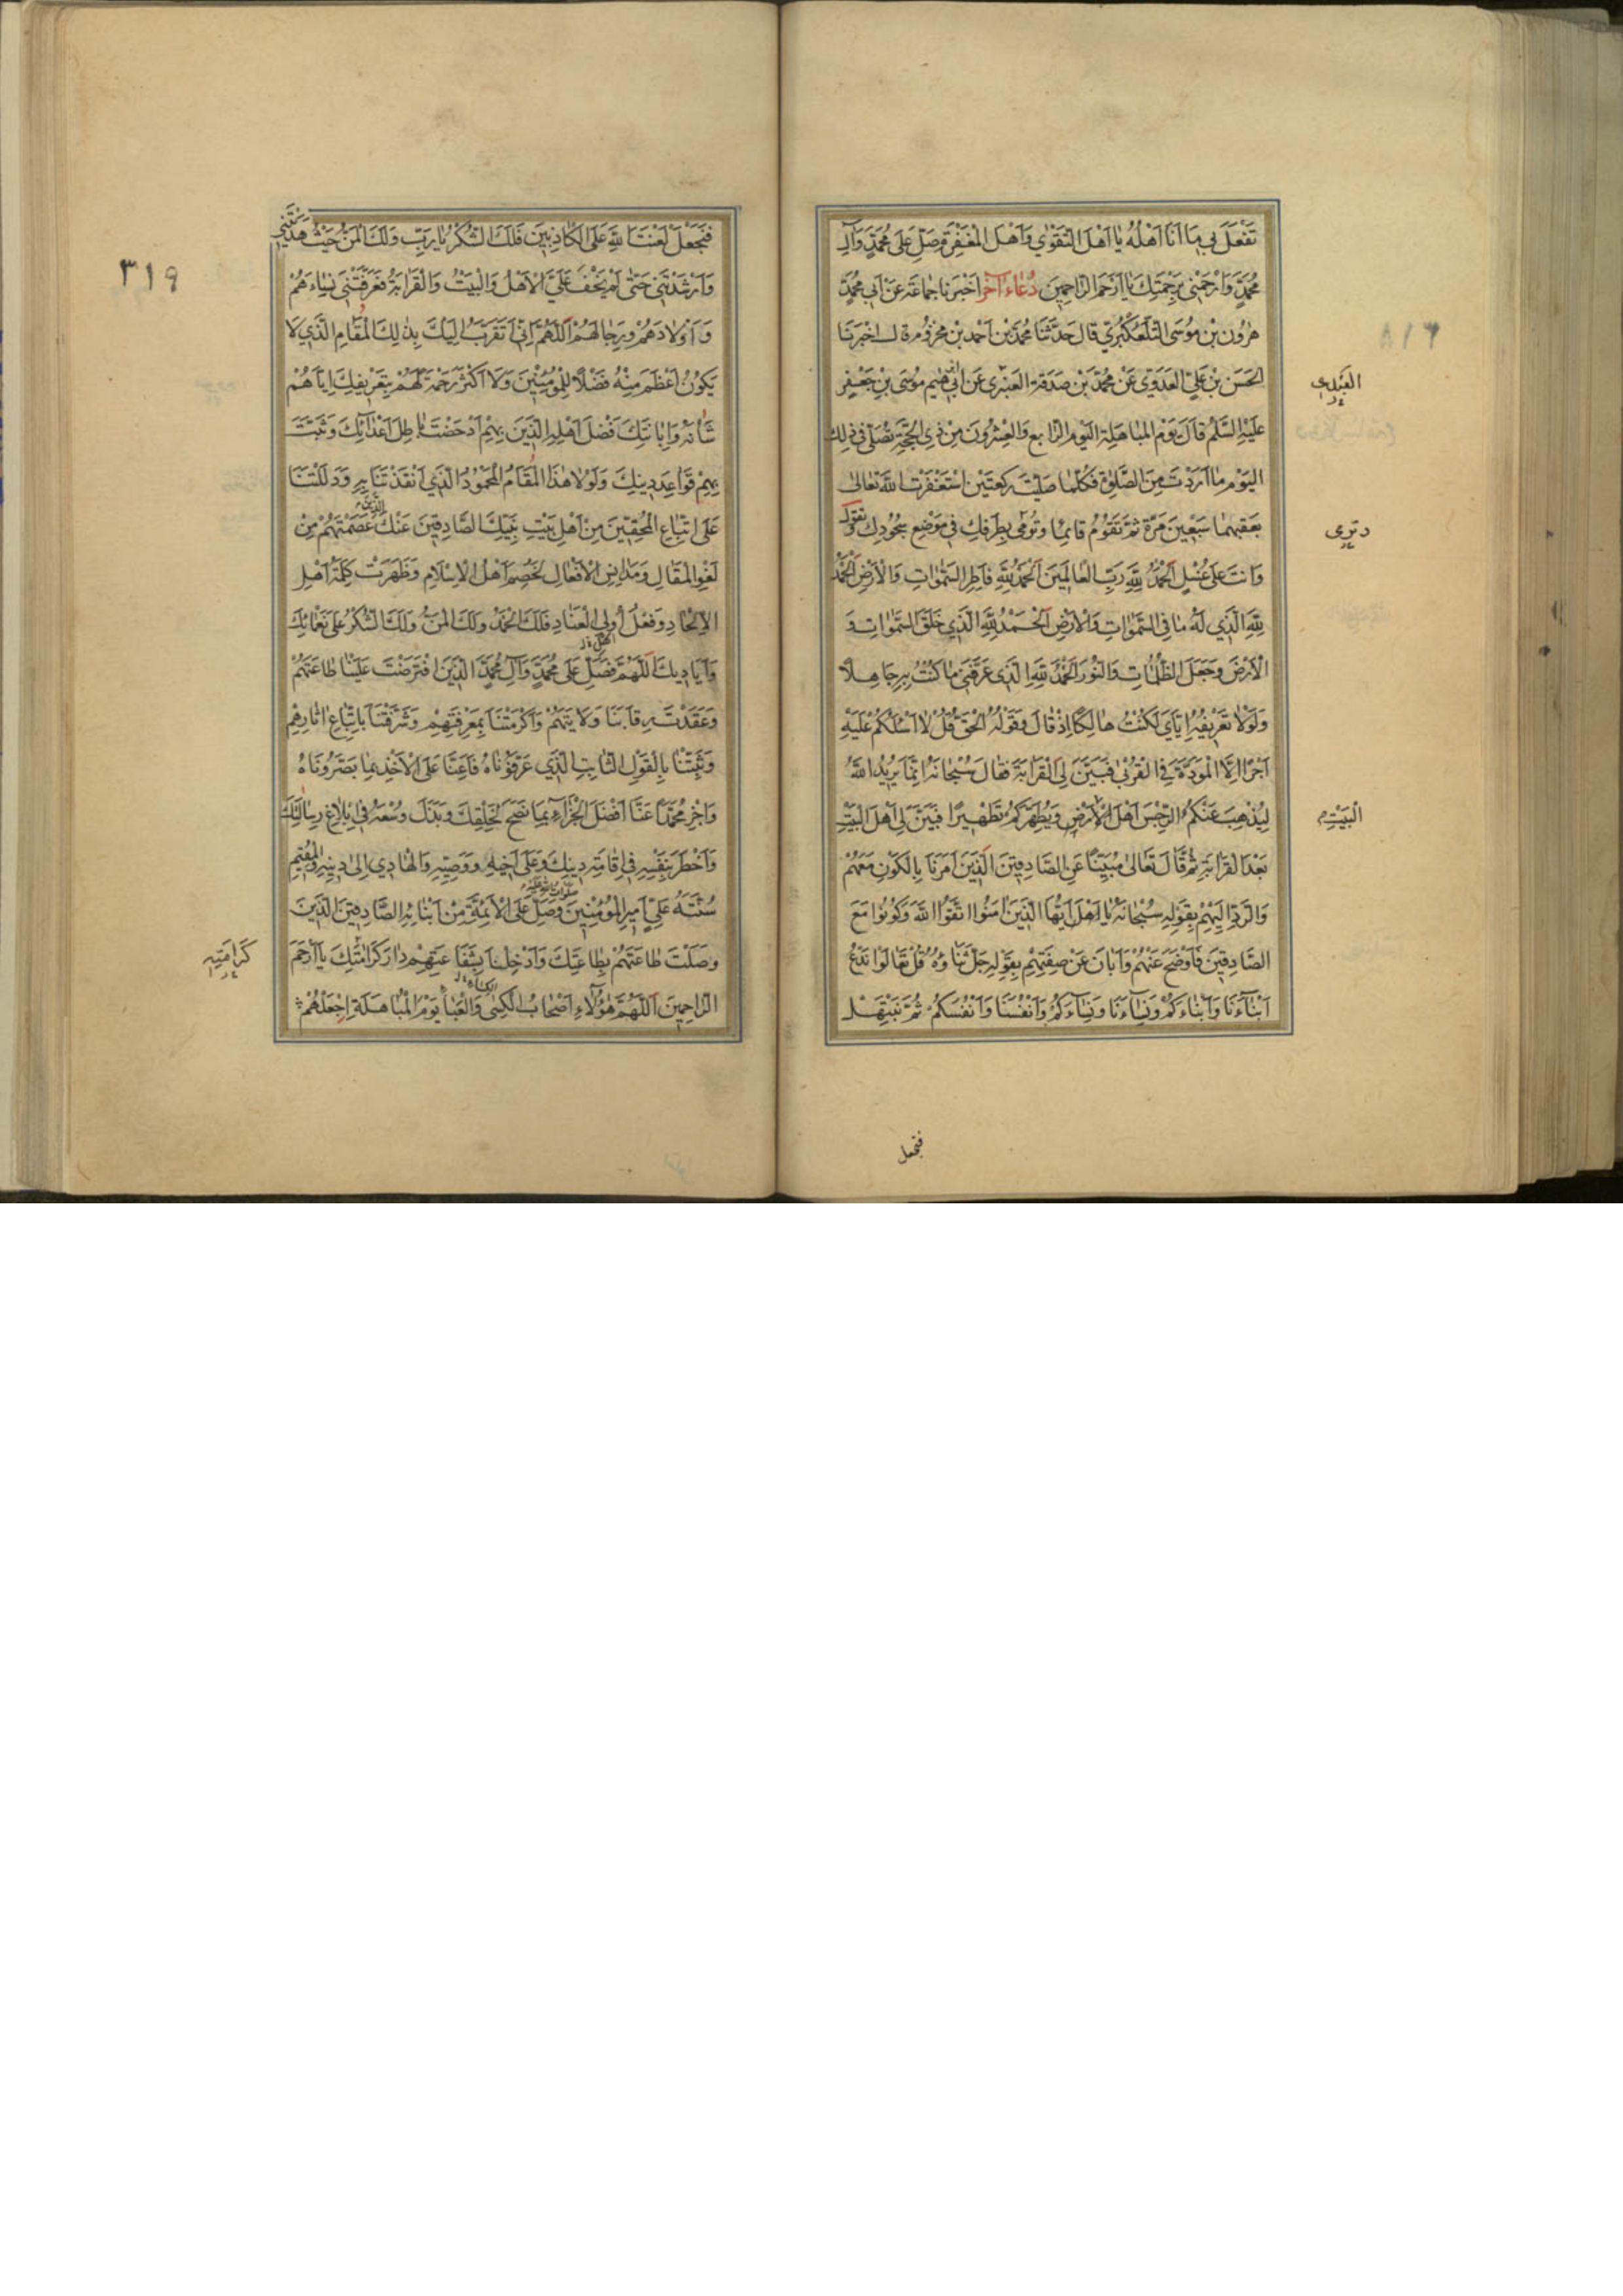 تَفْعَلَ بي مَا اَنَا اَهْلُهُ يٰا اَهْلَ التَّقْوٰي وَاَهْلَ الْمَغْفِرَةِ وَصَلِّ عَلىٰ مُحَمَّدٍ وَآلِ
مُحَمَّدٍ وَارْحَمْنى بِرَحْمَتِكَ يٰا اَرْحَمَ الرّٰاحِمينَ دُعٰاء آخر اَخْبَرَنا جَماعَة عَنْ اَبي مُحَمَّدٍ
هٰرُون بْن مُوسَى التَّلَّعُكْبُرِيّ قالَ حَدَّثَنا مُحَمَّد بْن اَحْمَد بْن مَخْزُوم قال اخْبَرَنَا
الحَسَن بْن عَليّ العَدَوي عَنْ مُحَمَّد بْن صَدَقة العَنْبَري عَن ابْرٰهيم مُوسَى بْنِ جَعْفَرٍ
العَبْدى
عَلَيْهِ السَّلٰمُ قالَ يَوْم المباهَلة اليَوْم الرّابع وَالعِشْرونَ مِنْ ذِي الحِجَّةِ تُصَلّي في ذٰلِك
اليَوْم مٰا اَرَدْتَ مِنَ الصَّلٰوة فَكُلَّما صَلَّيْتَ رَكعَتَيْن اسْتَغْفَرْتَ اللهَ تَعٰالىٰ
بعَقبهما سَبْعينَ مَرّة ثمّ تَقَوُمُ قائِمًا وتُومي بِطَرفِكِ في مَوْضِع سُجُودِك وتقولُ
وَانتَ عَلىٰ غُسْلٍ اَلْحَمْدُ لِلّٰهِ رَبِّ العٰالَمينَ اَلحَمْدُ لِلّٰهِ فٰاطِرِ السَّمٰوٰاتِ وَالْاَرْضِ اَلْحَمْدُ
لِلّٰهِ الَّذِي لَهُ مٰا فِى السَّمٰوٰاتِ وَالْاَرْضِ اَلْحَمْدُ لِلّٰهِ الَّذِي خَلَقَ السَّمٰوٰاتِ وَ
الْاَرْضَ وَجَعَلَ الظُّلُمٰاتِ وَالنُّورَ اَلْحَمْدُ لِلّٰهِ الَّذى عَرَّفَنى مٰا كُنْتُ بِهِ جٰاهِلًا
وَلَوْلٰا تَعْريفُهُ اِيّٰايَ لَكُنْتُ هٰالِكًا اِذْ قٰالَ وَقَوْلُهُ الْحَقّ قُلْ لٰا اَسْئَلُكُمْ عَلَيْهِ
اَجْرًا اِلَّا الْمَوَدَّةَ فِي الْقُرْبىٰ فَبَيَّنَ لِيَ الْقَرٰابَةَ فَقالَ سُبْحٰانَهُ اِنَّمٰا يُريدُ اللّٰهُ
لِيُذْهِبَ عَنْكُمُ الرِّجْسَ اَهْلَ الْاَرْضِ وَيُطَهِّرَكُمْ تَطْهيرًا فَبَيَّنَ لِى اَهْلَ الْبَيْتِ
الْبَيْتِ
بَعْدَ القَرٰابَةِ ثُمَّ قٰالَ تَعٰالىٰ مُبَيِّنًا عَنِ الصّٰادِقينَ الَّذينَ اَمَرَنٰا بِالكَوْنِ مَعَهُمْ
وَالرَّدِّ اِلَيْهِمْ بِقَوْلِهِ سُبْحٰانَهُ يٰا اَيُّهَا الَّذينَ اٰمَنُوا اتَّقُوا اللّٰهَ وَكُونُوا مَعَ
الصّٰادِقينَ فَاَوْضَحَ عَنْهُمْ وَاَبٰانَ عَنْ صِفَتِهِمْ بِقَوْلِهِ جَلَّ ثَنٰاؤُهُ قُلْ تَعٰالَوْا نَدْعُ
اَبْنٰآءَنٰا وَاَبْنٰاءَكُمْ وَنِسٰاءَنٰا وَنِسٰاءَكُمْ وَاَنْفُسَنٰا وَاَنْفُسَكُمْ ثُمَّ نَبْتَهِلْ
فنجعل
٣١٩
فَنَجْعَلْ لَعْنَتَ اللّٰهِ عَلَى الْكٰاذِبينَ فَلَكَ الشُّكْرُ يٰا رَبِّ وَلَكَ الْمَنُّ حَيْثُ هَدَيْتَنى
وَاَرْشَدْتَنى حَتّٰى لَمْ يَخْفَ عَلَيَّ الْاَهْلُ وَالْبَيْتُ وَالْقَرٰابَةُ فَعَرَّفْتَنى نِسٰاءَهُمْ
وَاَوْلٰادَهُمْ وَرِجٰالَهُمْ اَللّٰهُمَّ اِنّى اَتَقَرَّبُ اِلَيْكَ بِذٰلِكَ الْمَقٰامِ الَّذي لٰا
يَكُونُ اَعْظَمَ مِنْهُ فَضْلًا لِلْمُؤْمِنينَ وَلٰا اَكْثَرَ رَحْمَةً لَهُمْ بِتَعْريفِكَ اِيّٰاهُمْ
شَأْنَهُ وَاِبٰانَتِكَ فَضْلَ اَهْلِهِ الَّذينَ بِهِمْ اَدْحَضْتَ بٰاطِلَ اَعْدٰآئِكَ وَثَبَّتَّ
بِهِمْ قَوٰاعِدَ دينِكَ وَلَوْلٰا هٰذَا الْمَقٰامُ الْمَحْمُودُ الَّذي اَنْقَذْتَنٰا بِهِ وَدَلَلْتَنٰا
عَلَى اتِّبٰاعِ الْمُحِقّينَ مِنْ اَهْلِ بَيْتِ نَبِيِّكَ الصّٰادِقينَ عَنْكَ الَّذينَ عَصَمْتَهُمْ مِنْ
لَغْوِ الْمَقٰالِ وَمَدٰانِسِ الْاَفْعٰالِ لَخُصِمَ اَهْلُ الْاِسْلٰامِ وَظَهَرَتْ كَلِمَةُ اَهْلِ
الْاِلْحٰادِ وَفِعْلُ اُولِي الْعِنٰادِ فَلَكَ الْحَمْدُ وَلَكَ الْمَنُّ وَلَكَ الشُّكْرُ عَلىٰ نَعْمٰائِكَ
وَاَيٰاديكَ اَللّٰهُمَّ فَصَلِّ عَلىٰ مُحَمَّدٍ وَآلِ مُحَمَّدٍ الَّذينَ افْتَرَضْتَ عَلَيْنٰا طٰاعَتَهُمْ
وَعَقَدْتَ في رِقٰابِنٰا وَلٰايَتَهُمْ وَاَكْرَمْتَنٰا بِمَعْرِفَتِهِمْ وَشَرَّفْتَنٰا بِاتِّبٰاعِ اٰثٰارِهِمْ
وَثَبَّتَّنٰا بِالْقَوْلِ الثّٰابِتِ الَّذي عَرَّفُونٰاهُ فَاَعِنّٰا عَلَى الْاَخْذِ بِمٰا بَصَّرُونٰاهُ
وَاجْزِ مُحَمَّدًا عَنّٰا اَفْضَلَ الْجَزٰآءِ بِمٰا نَصَحَ لِخَلْقِكَ وَبَذَلَ وُسْعَهُ في اِبْلٰاغِ رِسٰالَتِكَ
وَاَخْطَرَ بِنَفْسِهِ في اِقٰامَةِ دينِكَ وَعَلىٰ اَخيهِ وَوَصِيِّهِ وَالْهٰادي اِلىٰ دينِهِ وَالْمُقيمِ
سُنَّتَهُ عَلِيٍّ اَميرِ الْمُؤْمِنينَ وَصَلِّ عَلَى الْاَئِمَّةِ مِنْ اَبْنٰائِهِ الصّٰادِقينَ الَّذينَ
وَصَلْتَ طٰاعَتَهُمْ بِطٰاعَتِكَ وَاَدْخِلْنٰا بِشَفٰاعَتِهِمْ دٰارَ كَرٰامَتِكَ يٰا اَرْحَمَ
كَرٰامَتِهِ
الرّٰاحِمينَ اَللّٰهُمَّ هٰؤُلٰاءِ اَصْحٰابُ الْكِسٰى وَالْعَبٰا يَوْمَ الْمُبٰاهَلَةِ اِجْعَلْهُمْ